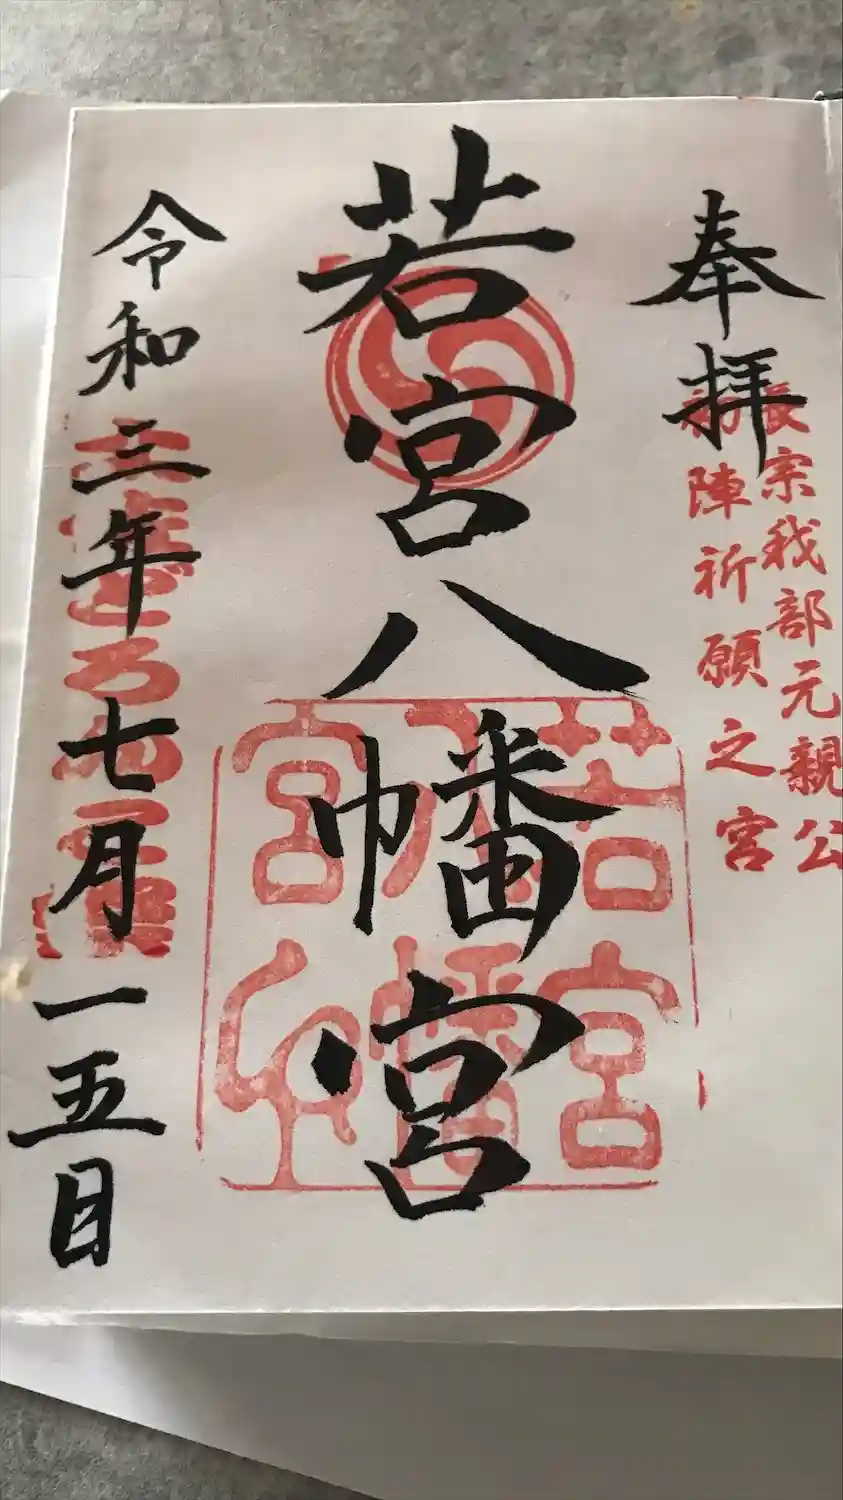 奉拝
長宗我部元親公
初陣祈願之宮
若宮八幡宮
若宮
八幡
宮印
令和三年七月一五日